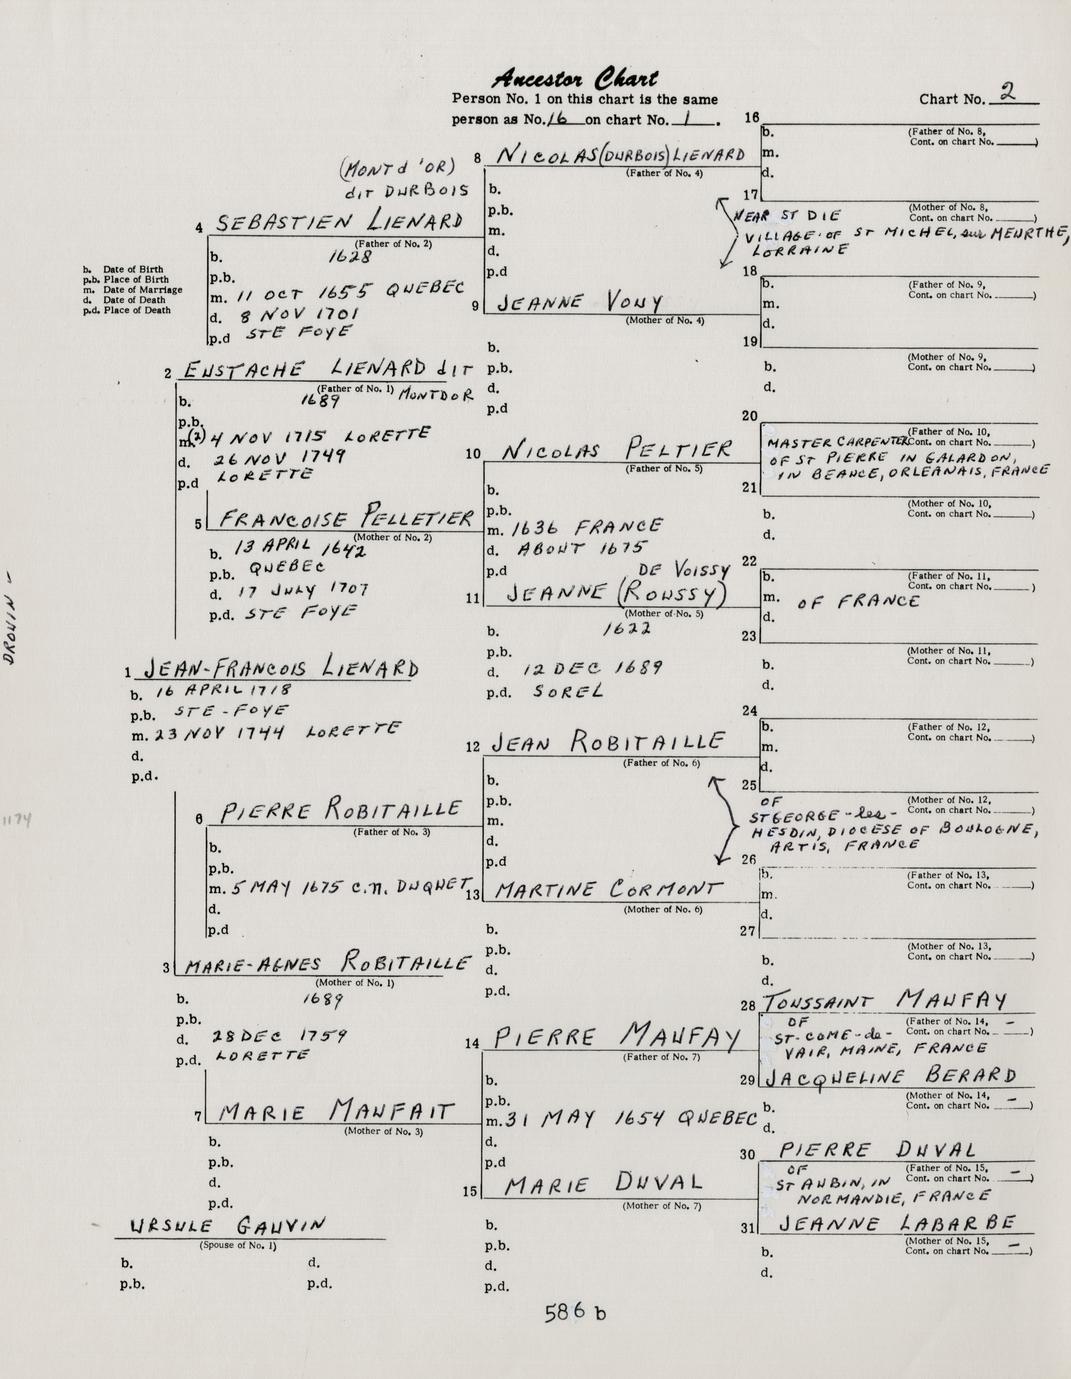 Ancestor Chart
Person No. 1 on this chart is the same
person as No. 16 on chart No. 1.
Chart No. 2
b. Date of Birth
p.b. Place of Birth
m. Date of Marriage
d. Date of Death
p.d. Place of Death
1 JEAN-FRANCOIS LIENARD
b. 16 APRIL 1718
p.b. STE-FOYE
m. 23 NOV 1744 LORETTE
d.
p.d.
2 EUSTACHE LIENARD dit
(Father of No. 1) MONTDOR
b. 1689
p.b.
m. (2) 4 NOV 1715 LORETTE
d. 26 NOV 1749
p.d LORETTE
3 MARIE-AGNES ROBITAILLE
(Mother of No. 1)
b. 1689
p.b.
d. 28 DEC 1759
p.d. LORETTE
(MONT d'OR)
dit DURBOIS
4 SEBASTIEN LIENARD
(Father of No. 2)
b. 1628
p.b.
m. 11 OCT 1655 QUEBEC
d. 8 NOV 1701
p.d STE FOYE
5 FRANCOISE PELLETIER
(Mother of No. 2)
b. 13 APRIL 1642
p.b. QUEBEC
d. 17 JULY 1707
p.d. STE FOYE
6 PIERRE ROBITAILLE
(Father of No. 3)
b.
p.b.
m. 5 MAY 1675 C.N. DUQUET
d.
p.d
7 MARIE MAUFAIT
(Mother of No. 3)
b.
p.b.
d.
p.d.
URSULE GAUVIN
(Spouse of No. 1)
b. d.
p.b. p.d.
8 NICOLAS (DURBOIS) LIENARD
(Father of No. 4)
b.
p.b.
m.
d.
p.d
9 JEANNE VOUY
(Mother of No. 4)
b.
p.b.
d.
p.d
10 NICOLAS PELTIER
(Father of No. 5)
b.
p.b.
m. 1636 FRANCE
d. ABOUT 1675
p.d
DE VOISSY
11 JEANNE (ROUSSY)
(Mother of No. 5)
b. 1622
p.b.
d. 12 DEC 1689
p.d. SOREL
12 JEAN ROBITAILLE
(Father of No. 6)
b.
p.b.
m.
d.
p.d
13 MARTINE CORMONT
(Mother of No. 6)
b.
p.b.
d.
p.d.
14 PIERRE MAUFAY
(Father of No. 7)
b.
p.b.
m. 31 MAY 1654 QUEBEC
d.
p.d
15 MARIE DUVAL
(Mother of No. 7)
b.
p.b.
d.
p.d.
16
(Father of No. 8,
Cont. on chart No. )
b.
m.
d.
17
(Mother of No. 8,
Cont. on chart No. )
NEAR ST DIE
VILLAGE OF ST MICHEL, sur MEURTHE,
LORRAINE
18
(Father of No. 9,
Cont. on chart No. )
b.
m.
d.
19
(Mother of No. 9,
Cont. on chart No. )
b.
d.
20
(Father of No. 10,
Cont. on chart No. )
MASTER CARPENTER
OF ST PIERRE IN GALARDON,
IN BEANCE, ORLEANAIS, FRANCE
21
(Mother of No. 10,
Cont. on chart No. )
b.
d.
22
(Father of No. 11,
Cont. on chart No. )
b.
m. OF FRANCE
d.
23
(Mother of No. 11,
Cont. on chart No. )
b.
d.
24
(Father of No. 12,
Cont. on chart No. )
b.
m.
d.
25
(Mother of No. 12,
Cont. on chart No. )
OF
ST GEORGE-les-
HESDIN, DIOCESE OF BOULOGNE,
ARTIS, FRANCE
26
(Father of No. 13,
Cont. on chart No. )
b.
m.
d.
27
(Mother of No. 13,
Cont. on chart No. )
b.
d.
28 TOUSSAINT MAUFAY
(Father of No. 14,
Cont. on chart No. — )
OF
ST-COME-de-
VAIR, MAINE, FRANCE
29 JACQUELINE BERARD
(Mother of No. 14,
Cont. on chart No. — )
b.
d.
30 PIERRE DUVAL
(Father of No. 15,
Cont. on chart No. — )
OF
ST AUBIN, IN
NORMANDIE, FRANCE
31 JEANNE LABARBE
(Mother of No. 15,
Cont. on chart No. — )
b.
d.
DROUIN
1174
586 b